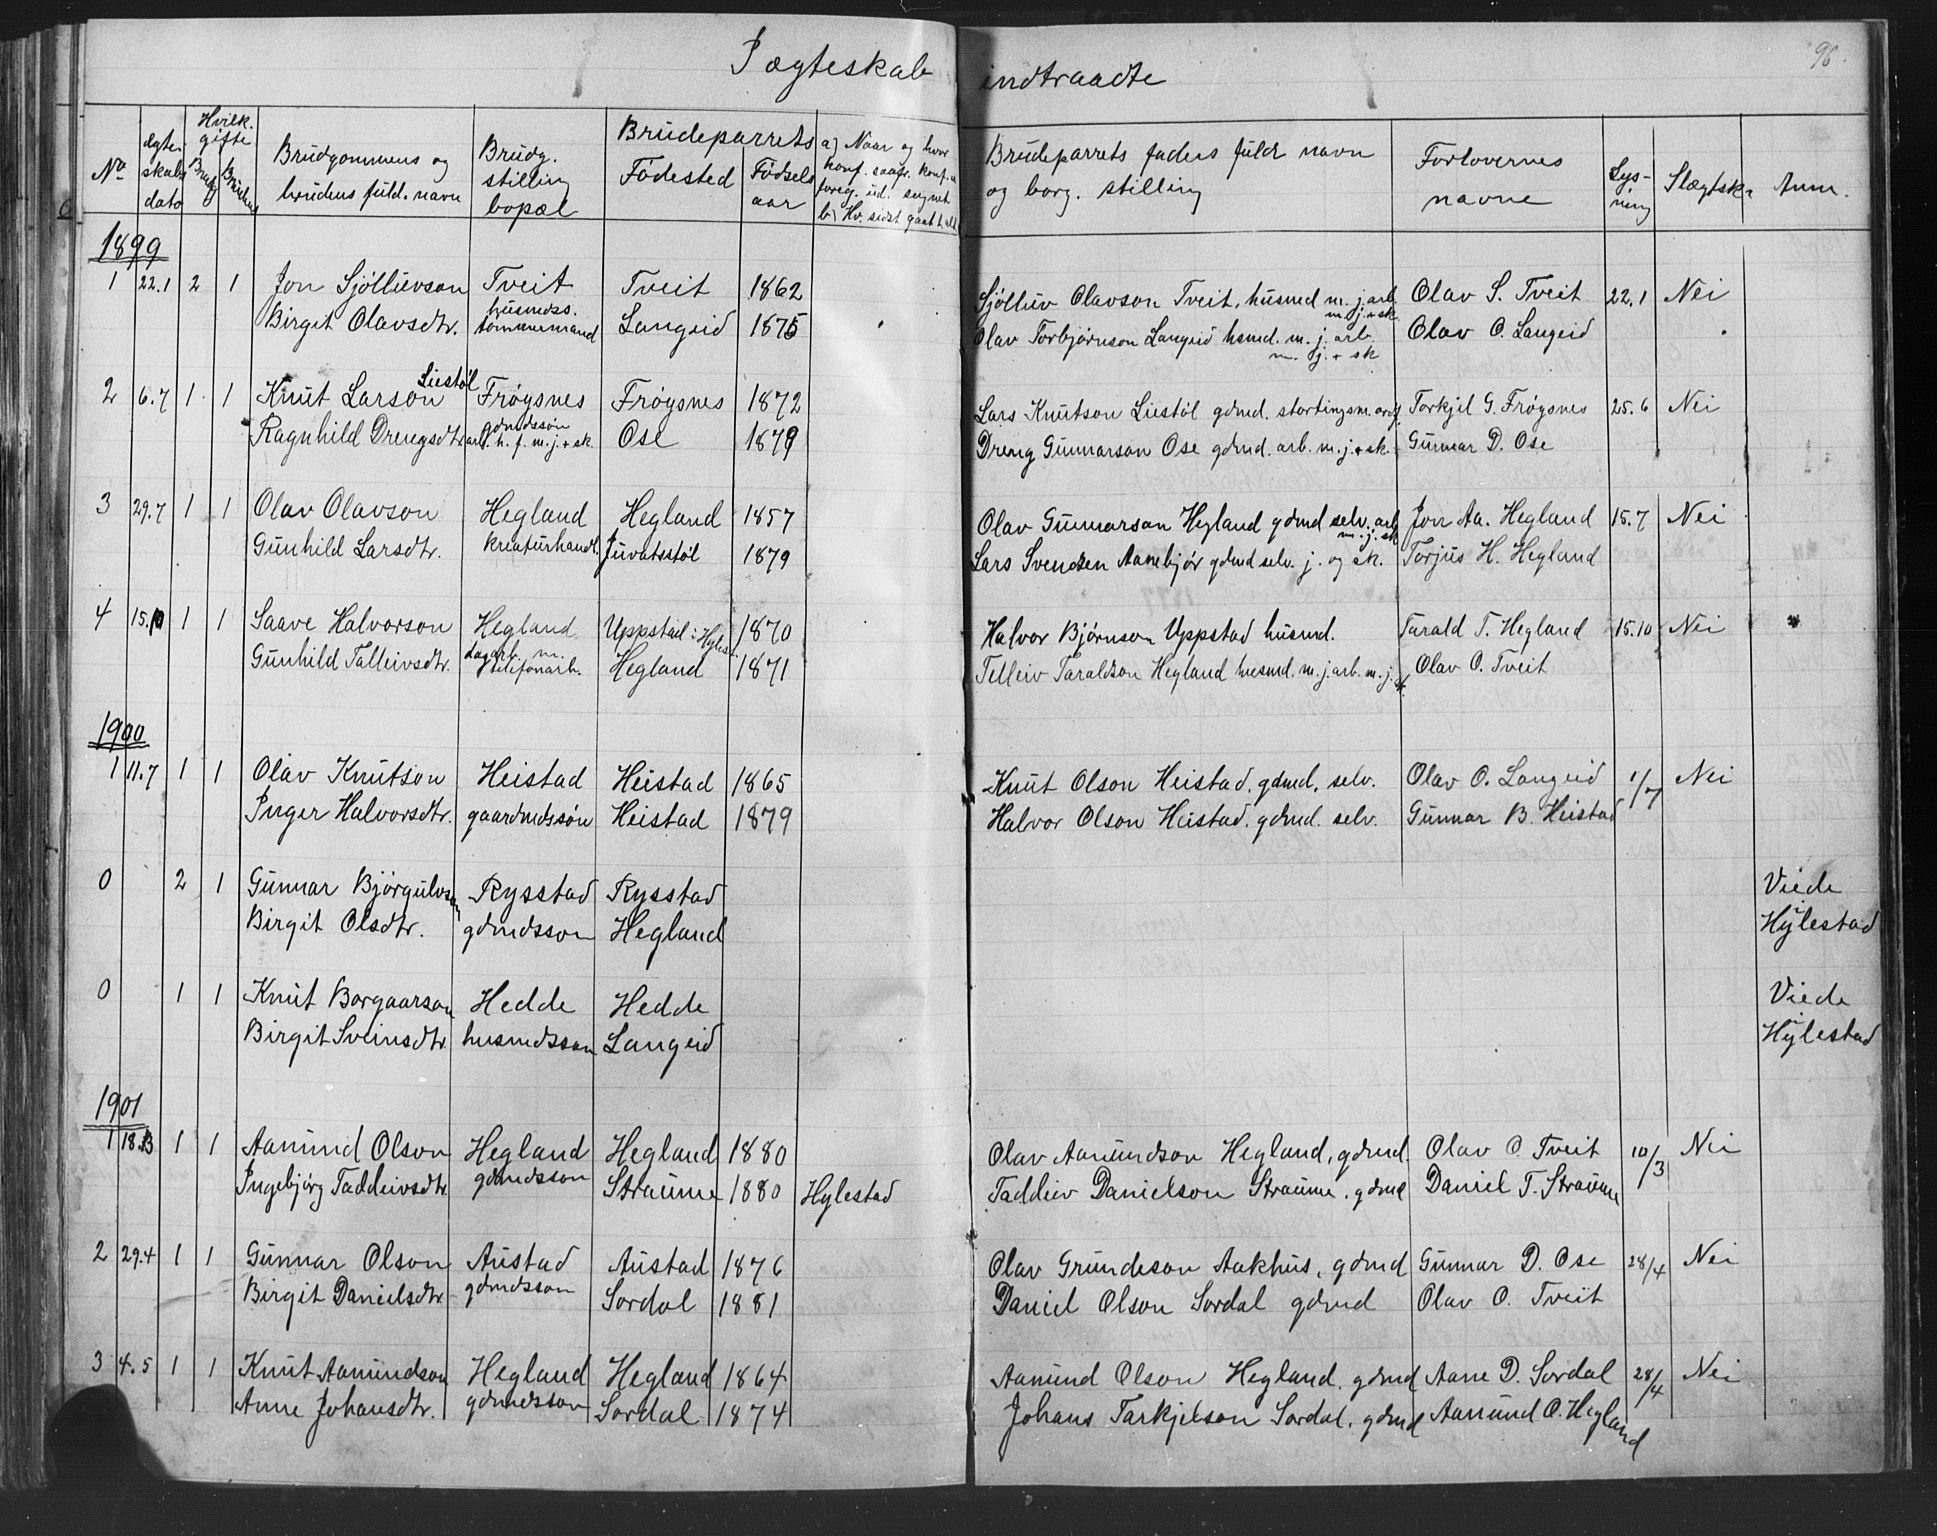 I ægteskab indtraadte
96.
No
ægte-
skabs
dato
Hvilk.
gifte
Brudg
Brudens
Brudgommens og
brudens fuld. navn
Brudg.
stilling
bopæl
Brudeparrets
Fødested
Fødsels
aar
a) Naar og hvor
b) Hv. sidst gaat t. alt
Brudeparrets faders fuld navn
og borg. stilling
Forlovernes
navne
Lys-
ning
Slægtsk.
Anm.
1899
1 22.1 2 1 Jon Sjøllivson Tveit Tveit 1862 Sjølliv Olavson Tveit, husmd m. j. arb. m. j. + sk. Olav S. Tveit 22.1 Nei
Birgit Olavsdtr. husmdss. tømmermand Langeid 1875 Olav Torbjørnson Langeid hsmd. m. j. arb. m. j. + sk Olav O. Langeid
2 6.7 1 1 Knut Larson Liestøl Frøysnes Frøysnes 1872 Lars Knutson Liestøl gdmd. stortingsm. ordf. Torkjil G. Frøysnes 25.6 Nei
Ragnhild Drengsdtr. gdmdssøn arb. h. f. m. j. + sk. Ose 1879 Dreng Gunnarson Ose gdmd. arb. m. j. + sk. Gunnar D. Ose
3 29.7 1 1 Olav Olavson Hegland Hegland 1857 Olav Gunnarson Hegland gdmd selv. arb m. j. sk Jon Aa. Hegland 15.7 Nei
Gunhild Larsdtr. kreaturhandl. Juvatsstøl 1879 Lars Svendsen Aanebjør gdmd selv. j. og sk. Torjus H. Hegland
4 15.10 1 1 Saave Halvorson Hegland Uppstad i Hylest. 1870 Halvor Bjørnson Uppstad husmd. Tarald T. Hegland 15.10 Nei
Gunhild Talleivsdtr. dagarb. m. telefonarb. Hegland 1871 Telleiv Taraldson Hegland husmd. m. j. arb. m. j. Olav O. Tveit
1900
1 11.7 1 1 Olav Knutson Heistad Heistad 1865 Knut Olson Heistad, gdmd, selv. Olav O. Langeid 1/7 Nei
Inger Halvorsdtr. gaardmdssøn Heistad 1879 Halvor Olson Heistad. gdmd. selv. Gunnar B. Heistad
0 2 1 Gunnar Bjørgulvson Rysstad Rysstad Viede
Birgit Olsdtr. gdmdsson Hegland Hylestad
0 1 1 Knut Borgaarson Hedde Hedde Viede
Birgit Sveinsdtr husmdsson Langeid Hylestad
1901
1 18.3 1 1 Aanund Olson Hegland Hegland 1880 Olav Aanundson Hegland, gdmd. Olav O. Tveit 10/3 Nei
Ingebjørg Taddeivsdtr. gdmdsson Straume 1880 Hylestad Taddeiv Danielson Straume, gdmd Daniel T. Straume
2 29.4 1 1 Gunnar Olson Austad Austad 1876 Olav Grundeson Aakhus, gdmd Gunnar D. Ose 28/4 Nei
Birgit Danielsdtr gdmdsson Sordal 1881 Daniel Olson Sordal gdmd Olav O. Tveit
3 4.5 1 1 Knut Aanundson Hegland Hegland 1864 Aanund Olson Hegland, gdmd Aane D. Sordal 28/4 Nei
Anne Johansdtr. gdmdsson Sordal 1874 Johans Tarkjelson Sordal, gdmd Aanund O. Hegland